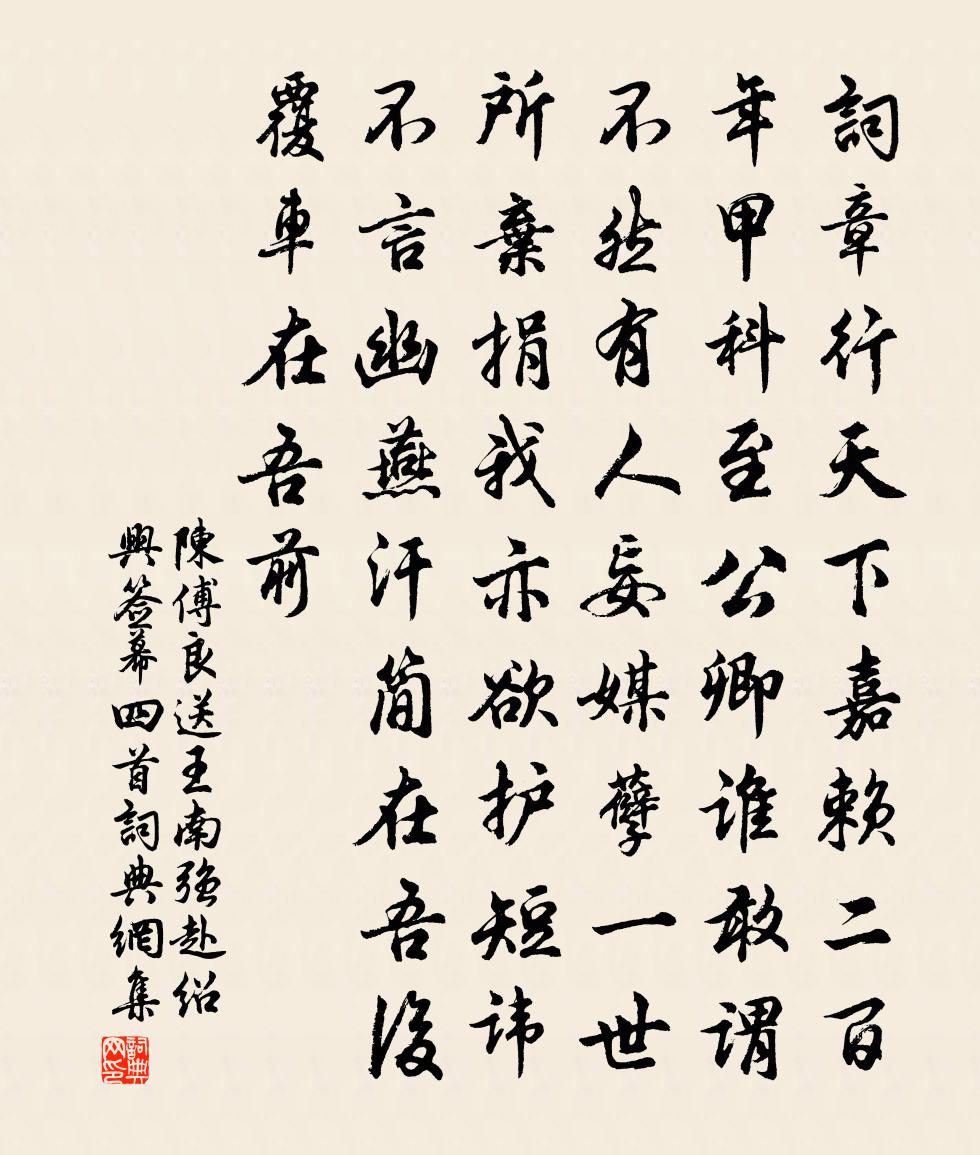 詞章行天下嘉賴二百
年甲科至公卿誰敢謂
不然有人妄媒孽一世
所棄捐我亦欲护短諱
不言幽燕汗简在吾後
覆車在吾前
陳傅良送王南强赴绍
興签幕四首詞典網集
詞典网印